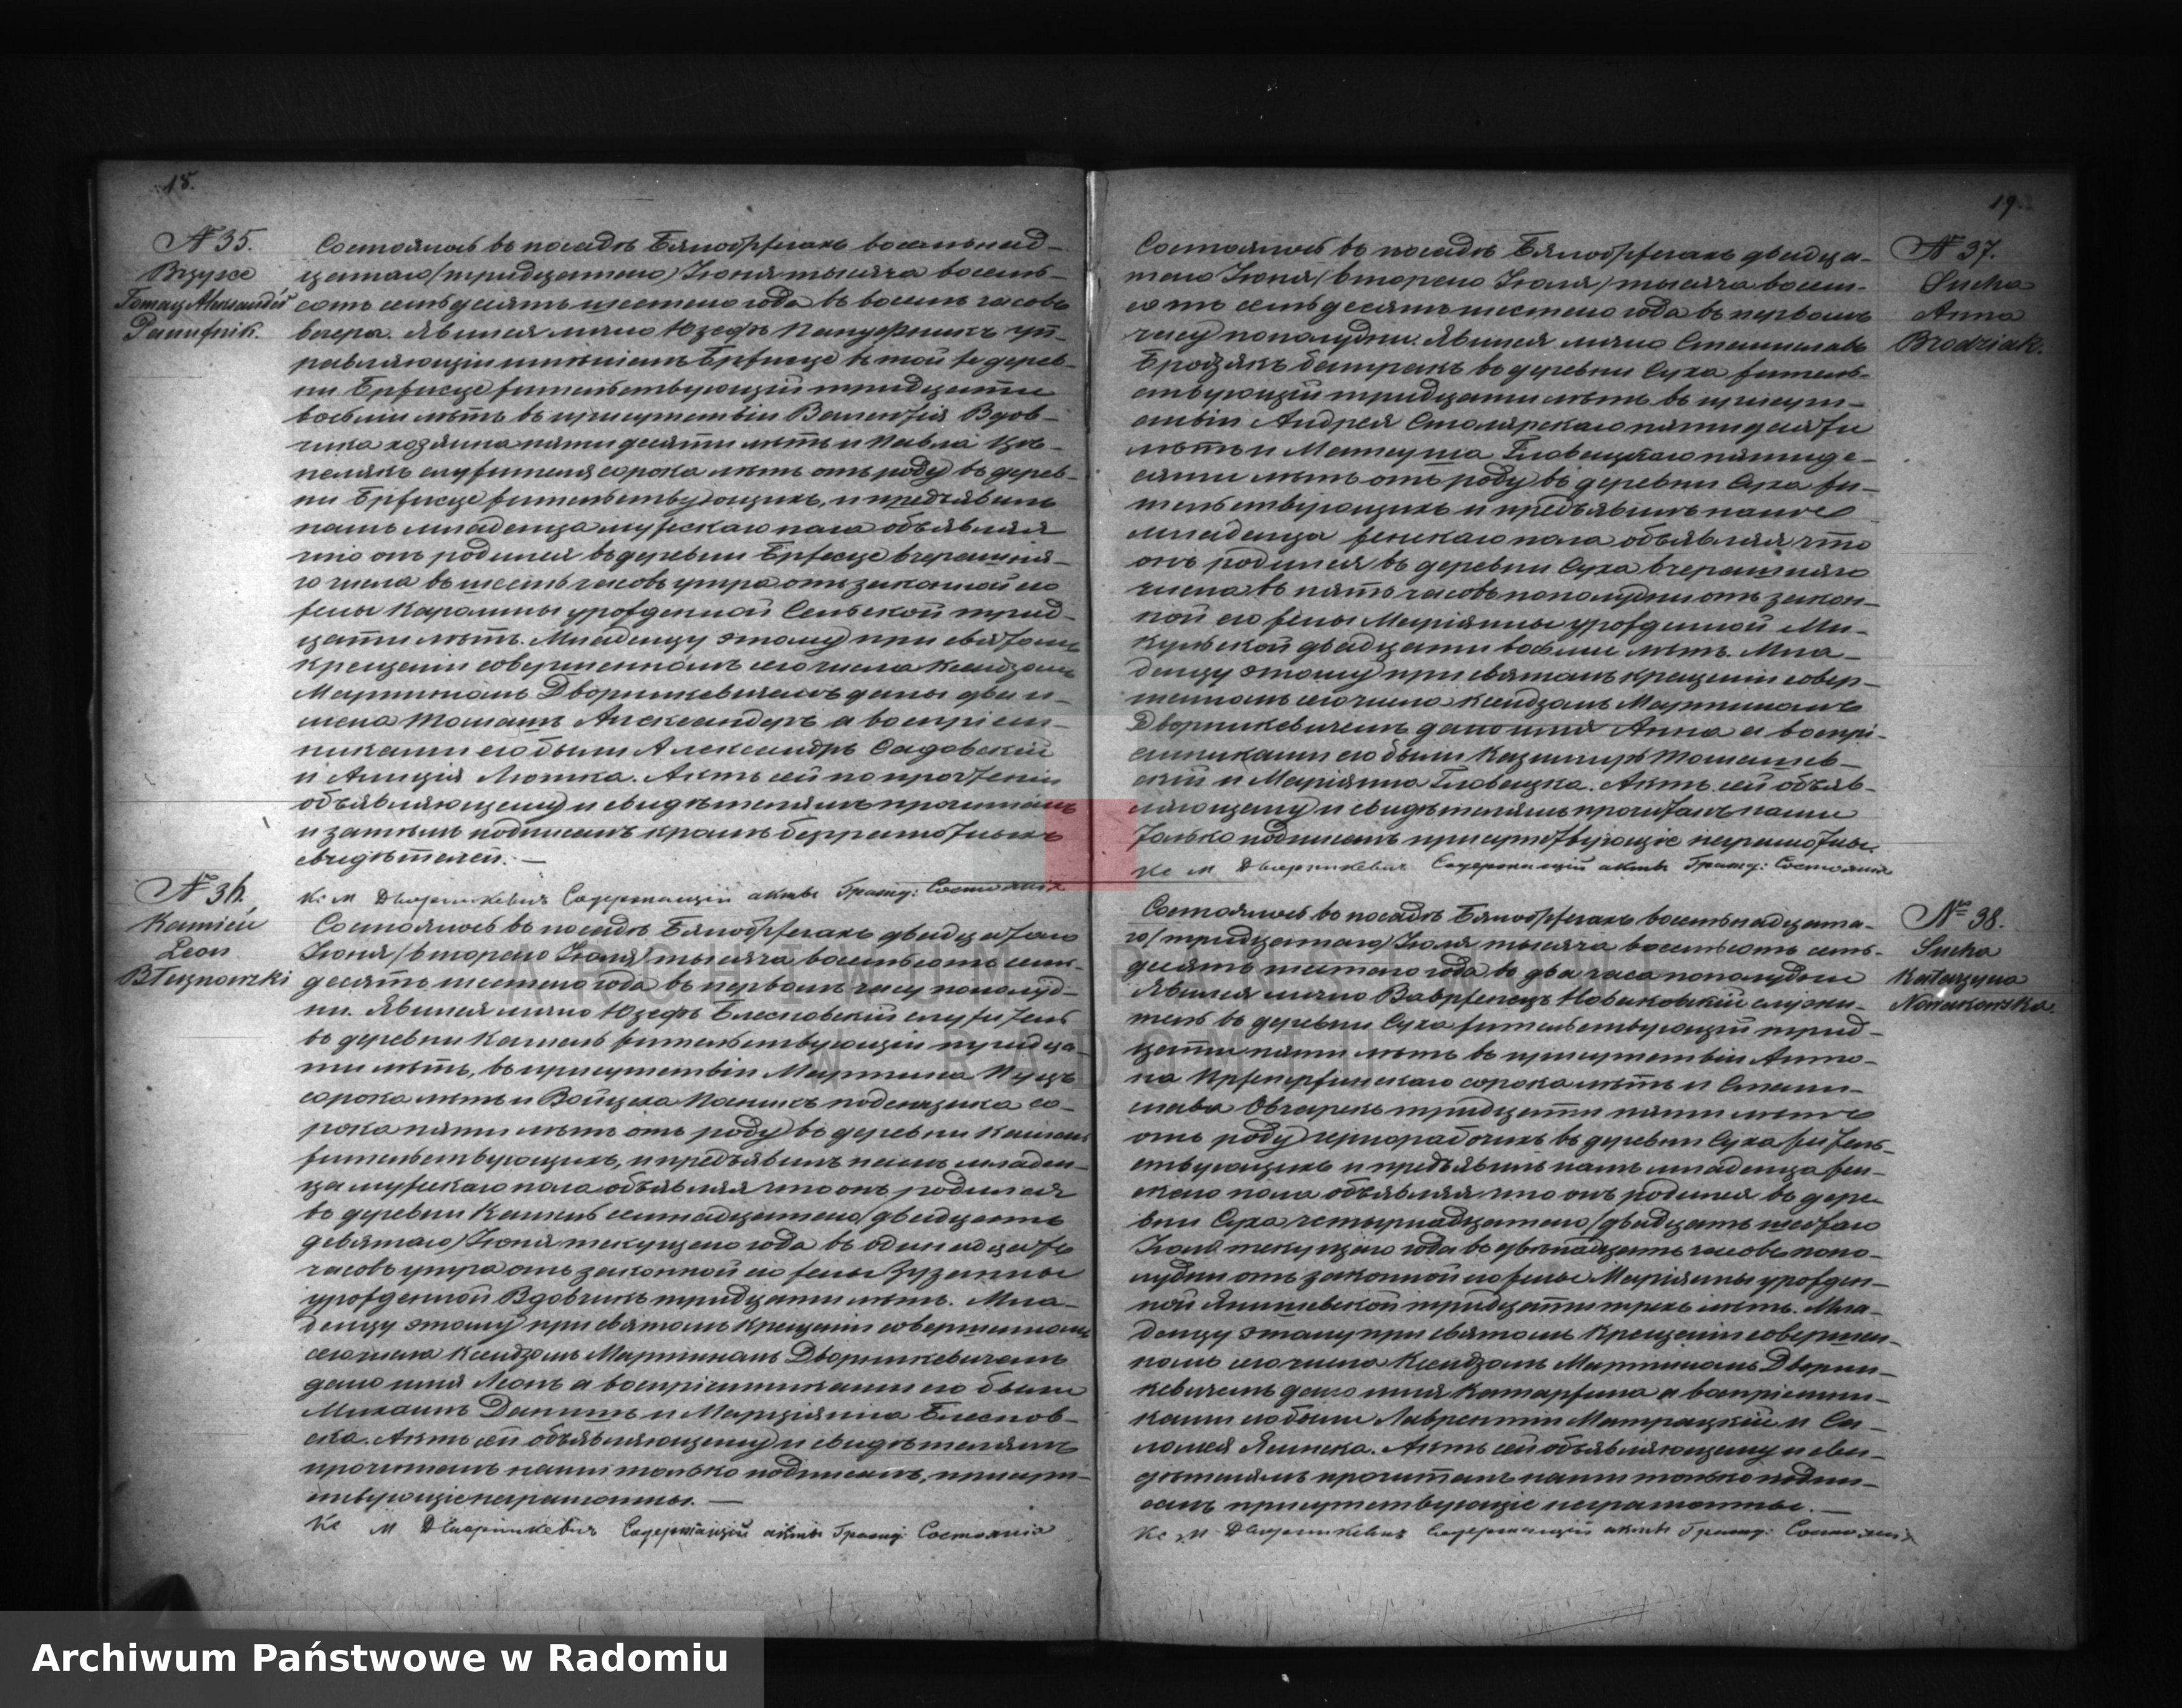 18.
№ 35.
Brzysce
Tomasz Alexander
Panufnik.
Состоялось въ посадѣ Бялобржегахъ восемьнад-
цатаго (тридцатаго) Іюня тысяча восемь-
сотъ семьдесятъ шестого года въ восемь часовъ
вечера. Явился лично Юзефъ Пануфникъ уп-
равляющій имѣніемъ Бржисце въ той же дерев-
ни Бржисце жительствующій тридцати
восьми лѣтъ въ присутствіи Валентія Вдов-
чика хозяина пятидесяти лѣтъ и Павла
служителя сорока лѣтъ отъ роду въ дерев-
ни Бржисце жительствующихъ, и предъявилъ
намъ младенца мужескаго пола объявляя
что онъ родился въ деревни Бржесце вчерашня-
го числа въ шесть часовъ утра отъ законной его
жены Каролины урожденной Сельской трид-
цати лѣтъ. Младенцу этому при святомъ
крещеніи совершенномъ сего числа Ксендзомъ
Мартиномъ Дворникевичемъ даны два и-
мена Томашъ Александеръ а воспріем-
никами его были Александръ Садовскій
и Алиція Лютка. Актъ сей по прочтеніи
объявляющему и свидѣтелямъ прочитанъ
и затѣмъ подписанъ кромѣ безграмотныхъ
свидѣтелей. —
Кс М Дворникевич Содержащій акты Гражд: Состоянія
№ 36.
Kamień
Leon
Błesznowski
Состоялось въ посадѣ Бялобржегахъ двадцатаго
Іюня (второго Іюля) тысяча восемьсотъ семь-
десятъ шестого года въ первомъ часу пополуд-
ни. Явился лично Юзефъ служитель
въ деревни Камень жительствующій тридца-
ти лѣтъ, въ присутствіи Мартина
сорока лѣтъ и Войцеха подсендзика со-
рока пяти лѣтъ отъ роду въ деревни Камень
жительствующихъ, и предъявилъ намъ младен-
ца мужескаго пола объявляя что онъ родился
въ деревни Камень семнадцатого (двадцать
девятаго) Іюня текущего года въ одинадцать
часовъ утра отъ законной его жены Зузанны
урожденной Вдовчикъ тридцати лѣтъ. Мла-
денцу этому при святомъ крещеніи совершенномъ
сего числа Ксендзомъ Мартиномъ Дворникевичемъ
дано имя Леонъ а воспріемниками его были
Михаилъ и Марціянна
Актъ сей объявляющему и свидѣтелямъ
прочитанъ нами только подписанъ, присут-
ствующіе неграмотны. —
Кс М Дворникевич Содержащій акты Гражд: Состоянія
19.
№ 37.
Sucha
Anna
Brodziak.
Состоялось въ посадѣ Бялобржегахъ двадца-
того Іюня (второго Іюля) тысяча восемь-
сотъ семьдесятъ шестого года въ первомъ
часу пополудни. Явился лично Станиславъ
Бродзякъ батракъ въ деревни Суха житель-
ствующій тридцати лѣтъ въ присут-
ствіи Андрея Столярскаго пятидесяти
лѣтъ и Матеуша Гловацкаго пятиде-
сяти лѣтъ отъ роду въ деревни Суха жи-
тельствующихъ и предъявилъ намъ
младенца женскаго пола объявляя что
онъ родился въ деревни Суха вчерашняго
числа въ пять часовъ пополудни отъ закон-
ной его жены Маріянны урожденной Ми-
кульской двадцати восьми лѣтъ. Мла-
денцу этому при святомъ крещеніи совер-
шенномъ сего числа Ксендзомъ Мартиномъ
Дворникевичемъ дано имя Анна а воспрі-
емниками его были Казимиръ Томашев-
скій и Маріянна Гловацка. Актъ сей объяв-
ляющему и свидѣтелямъ прочитанъ нами
только подписанъ присутствующіе неграмотны.
Кс М Дворникевич Содержащій акты Гражд: Состоянія
№ 38.
Sucha
Katarzyna
Nowakowska.
Состоялось въ посадѣ Бялобржегахъ восемьнадцата-
го (тридцатаго) Іюля тысяча восемьсотъ семь-
десятъ шестого года въ два часа пополудни
Явился лично Ваврженецъ Новаковскій служи-
тель въ деревни Суха жительствующій трид-
цати пяти лѣтъ въ присутствіи Анто-
на сорока лѣтъ и Стани-
слава Овчарекъ тридцати пяти лѣтъ
отъ роду чернорабочихъ въ деревни Суха житель-
ствующихъ и предъявилъ намъ младенца жен-
скаго пола объявляя что онъ родился въ дере-
вни Суха четырнадцатого (двадцать шестаго
Іюля текущаго года въ двѣнадцать часовъ попо-
лудни отъ законной его жены Маріянны урожден-
ной Янишевской тридцати трехъ лѣтъ. Мла-
денцу этому при святомъ крещеніи совершен-
номъ сего числа Ксендзомъ Мартиномъ Дворни-
кевичемъ дано имя Катаржина а воспріемни-
ками его были Лаврентій и Са-
ломея Ямиска. Актъ сей объявляющему и сви-
дѣтелямъ прочитанъ нами только подпи-
санъ присутствующіе неграмотны. —
Кс М Дворникевич Содержащій акты Гражд: Состоянія
ARCHIWUM PAŃSTWOWE
W RADOMIU
Archiwum Państwowe w Radomiu